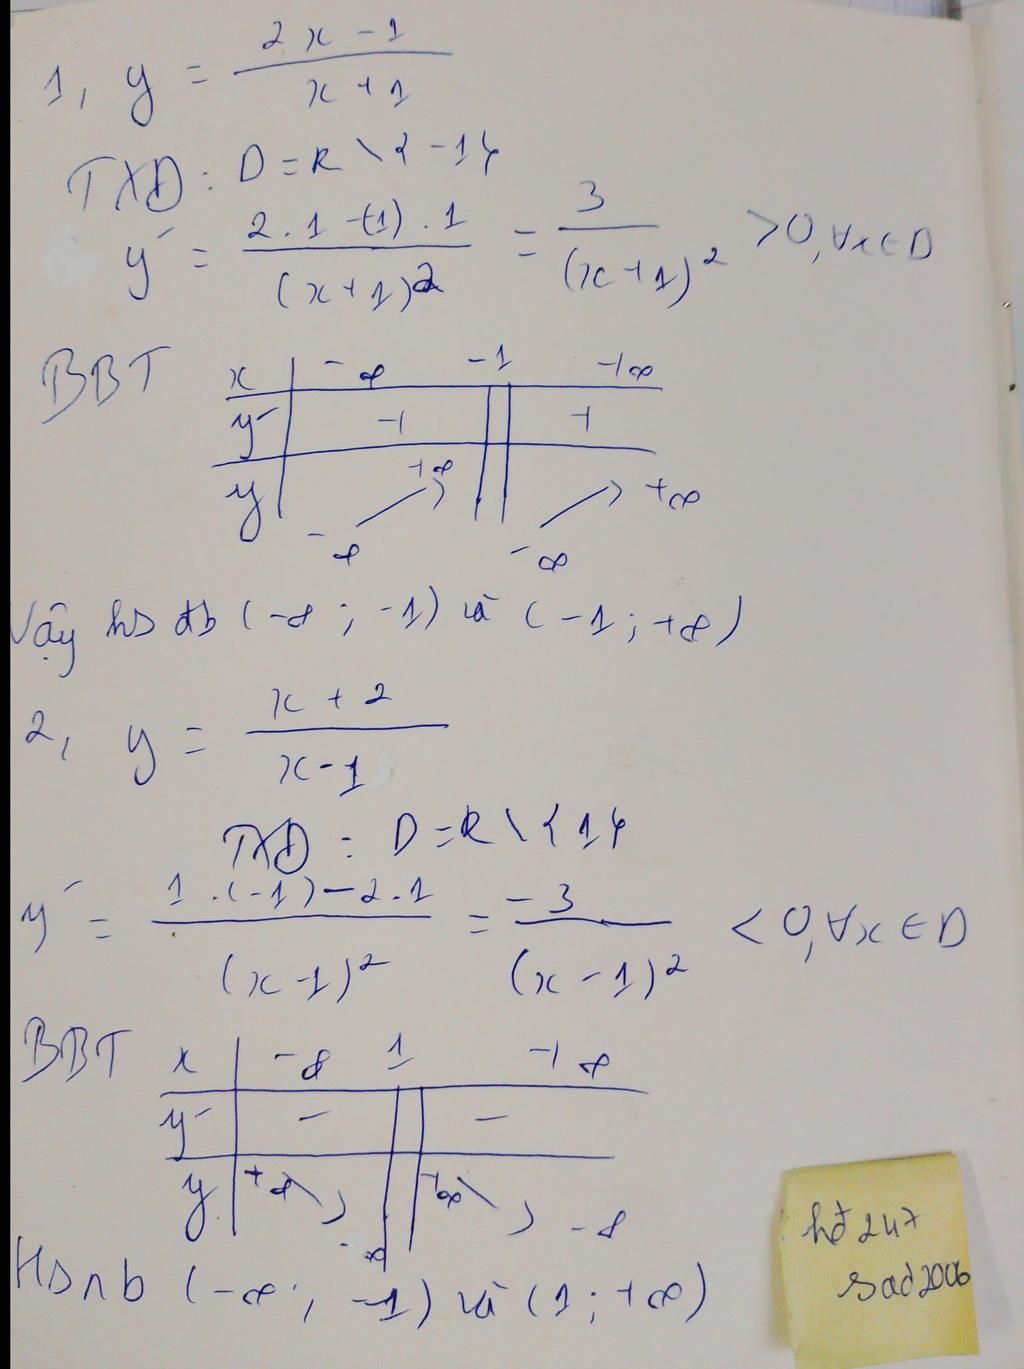 1, y = \frac{2x-1}{x+1}
TXD : D = R \ {-1}
y' = \frac{2.1-(1).1}{(x+1)^2} = \frac{3}{(x+1)^2} >0, ∀x∈D
BBT
x | -∞ -1 +∞
y' | + || +
y | -∞ ↗ +∞ || -∞ ↗ +∞
Vậy hs đb (-∞ ; -1) và (-1 ; +∞)
2, y = \frac{x+2}{x-1}
TXD : D = R \ {1}
y' = \frac{1.(-1)-2.1}{(x-1)^2} = \frac{-3}{(x-1)^2} < 0, ∀x ∈ D
BBT
x | -∞ 1 +∞
y' | - || -
y | +∞ ↘ -∞ || +∞ ↘ -∞
Hs nb (-∞ ; -1) và (1 ; +∞)
hđ 247
sad2006